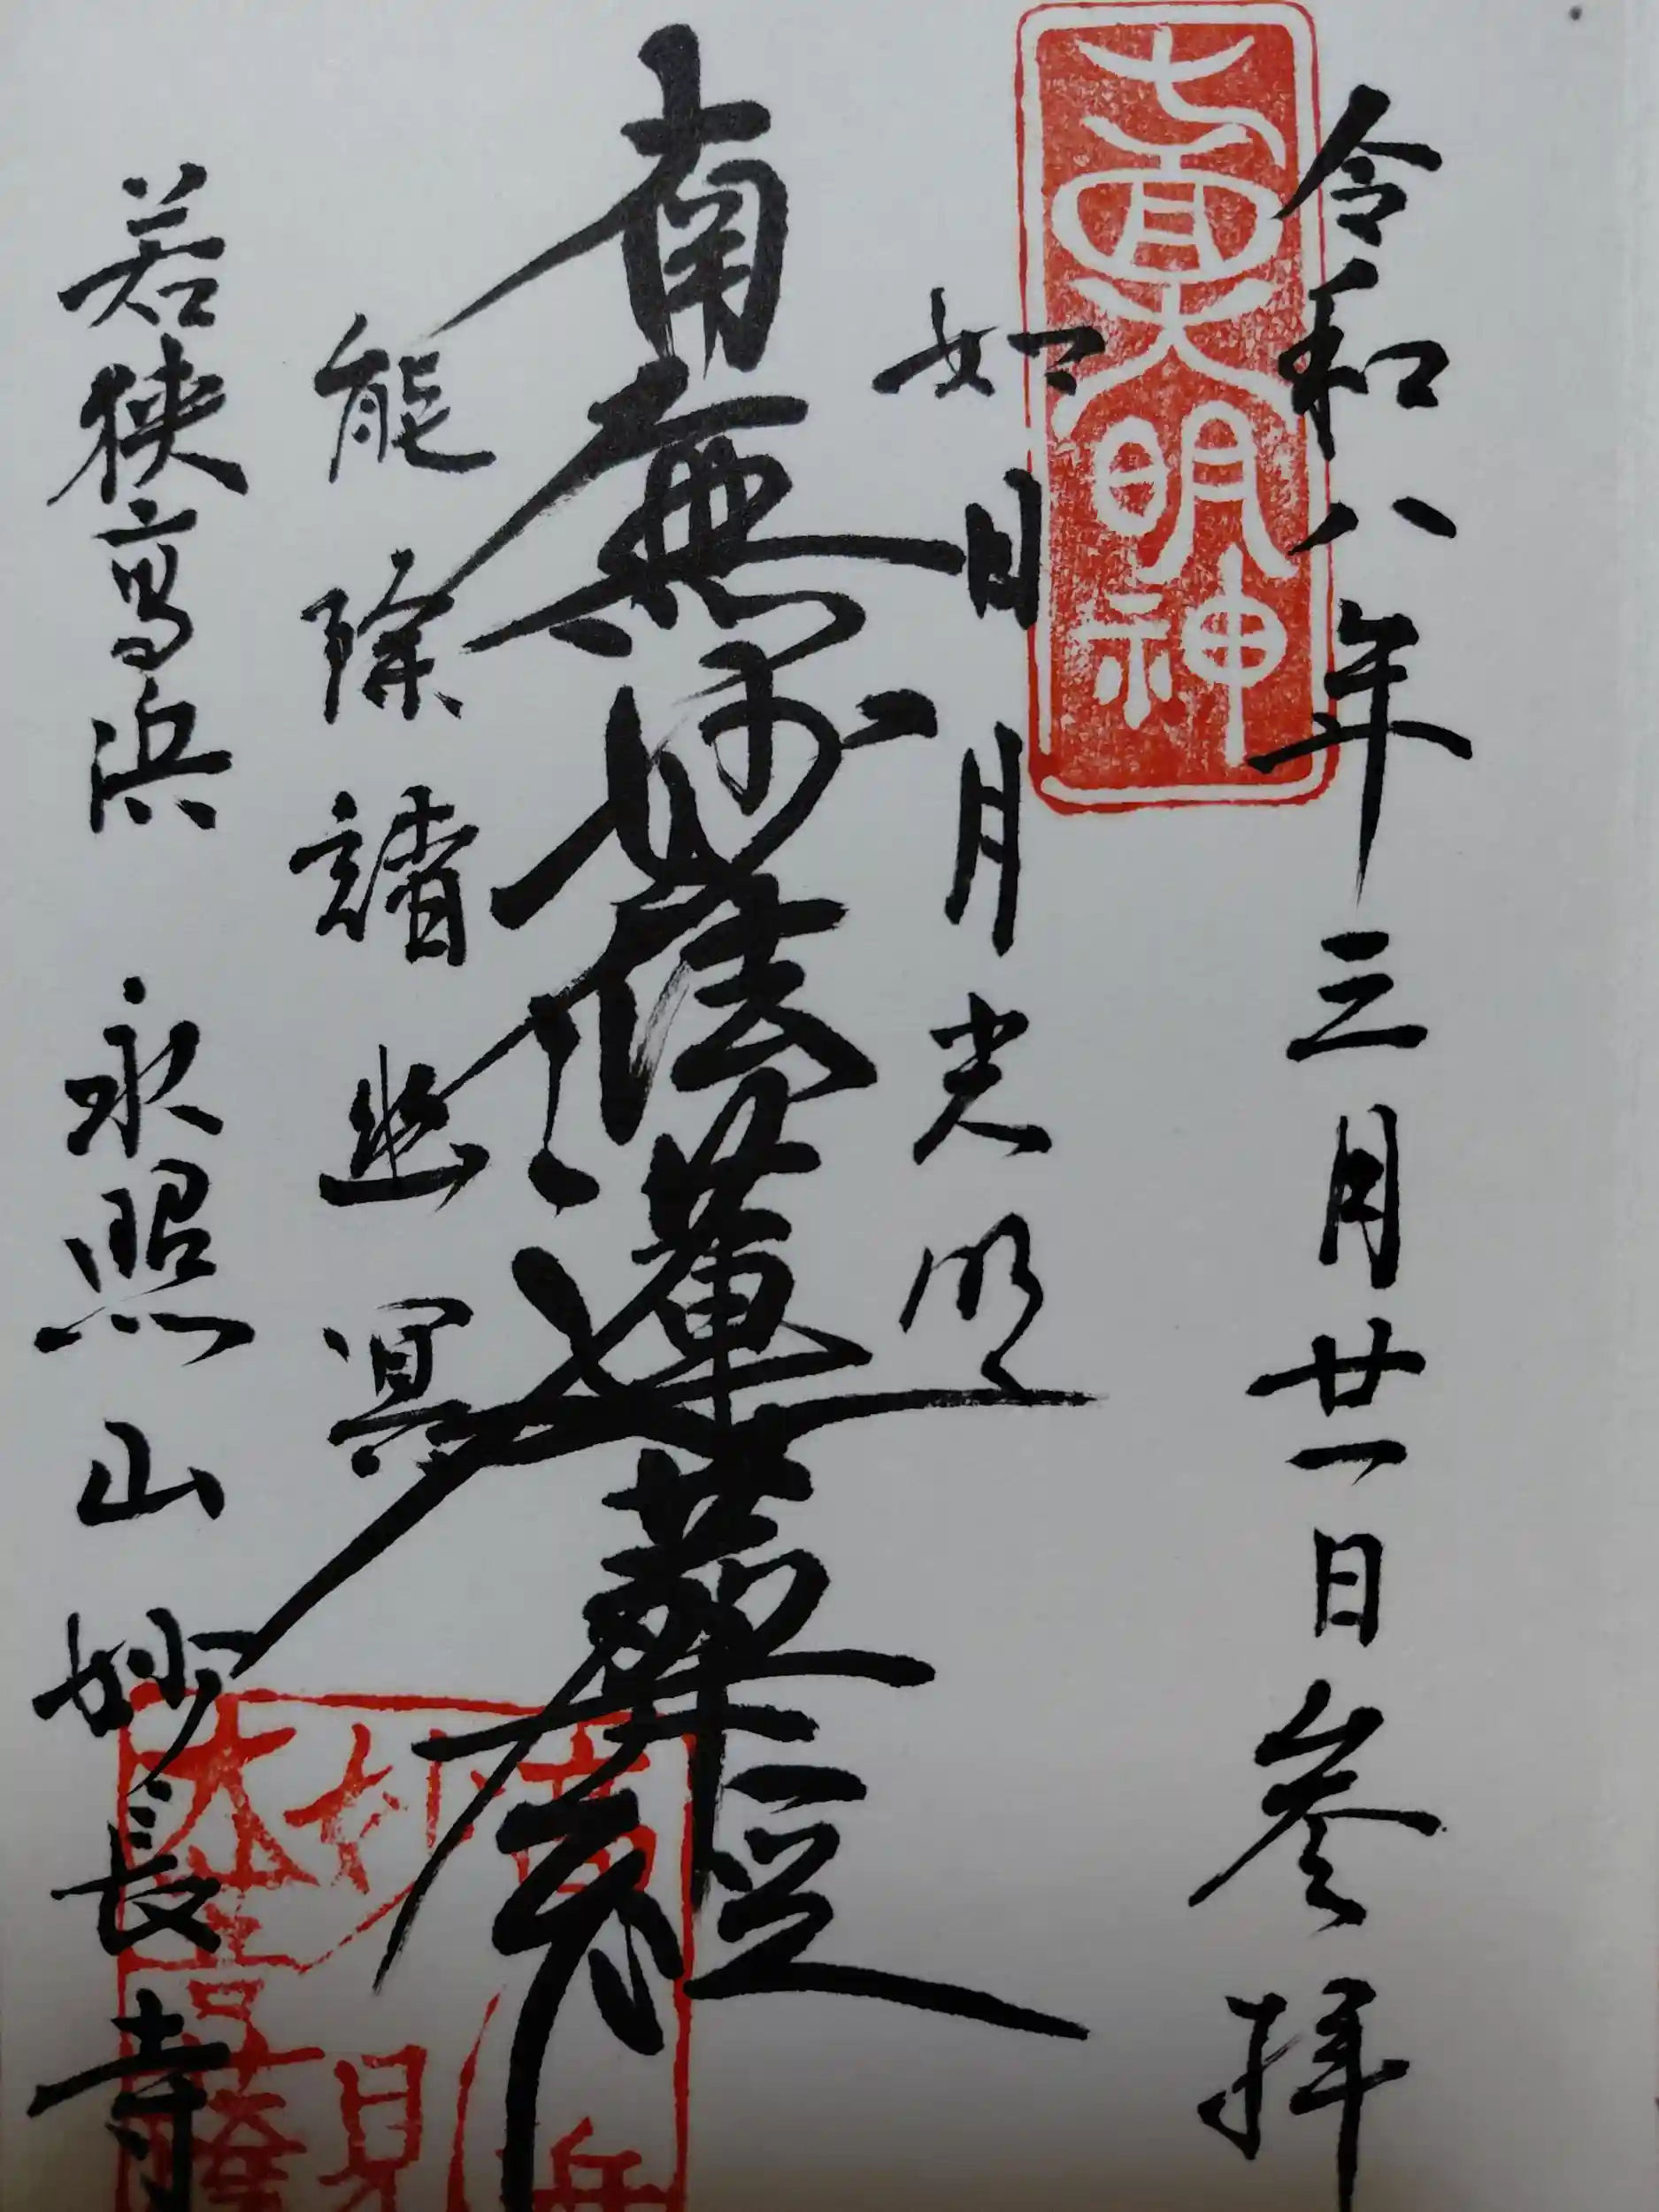 令和八年三月廿一日参拝
七面大明神
如日月光明
南無妙法蓮華經
能除諸幽冥
若狭高浜 永照山 妙長寺